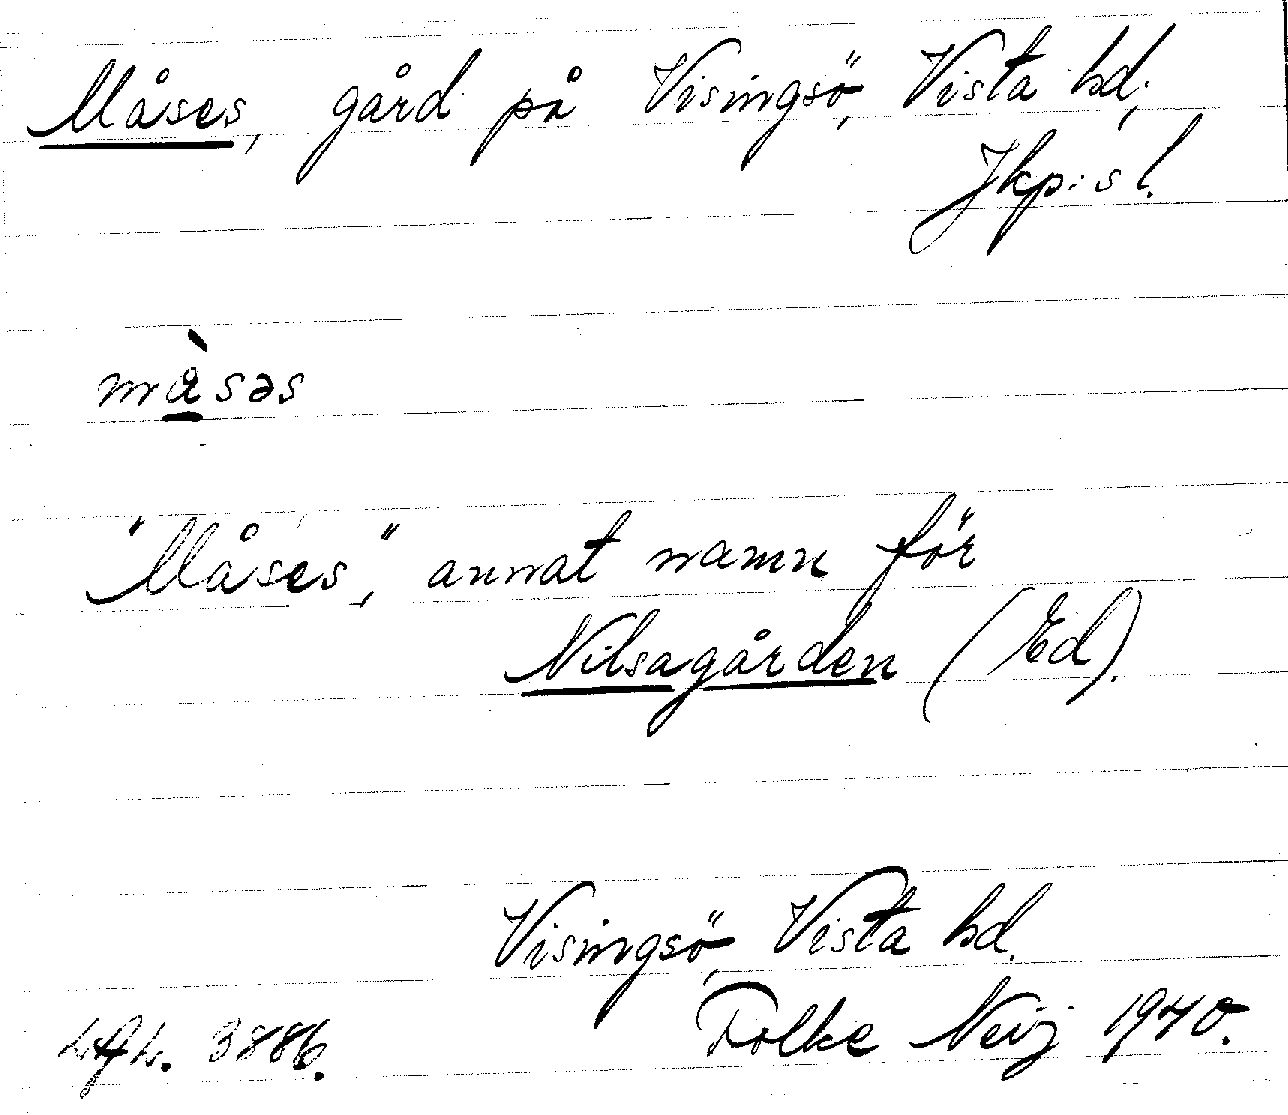 Måses, gård på Visingsö, Vista hd,
Jkp:s l.
må̀səs
"Måses," annat namn för
Nilsagården (Ed).
Visingsö, Vista hd.
Folke Neij 1940.
3886.